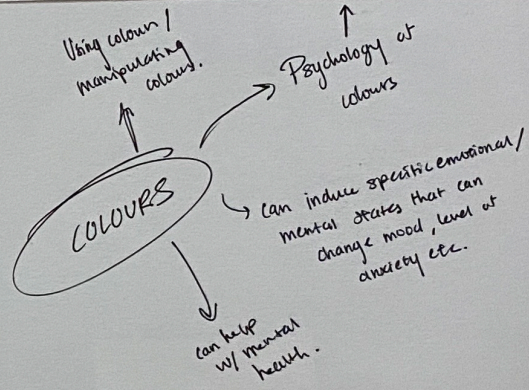 Using colour /
manipulating
colours.
Psychology of
colours
COLOURS
can induce specific emotional /
mental states that can
change mood, level of
anxiety etc.
can help
w/ mental
health.